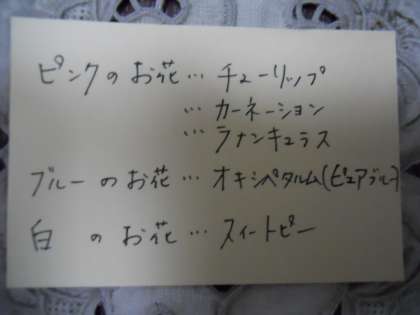 ピンクのお花… チューリップ
… カーネーション
… ラナンキュラス
ブルーのお花… オキシペタルム(ピュアブルー)
白 のお花… スイートピー